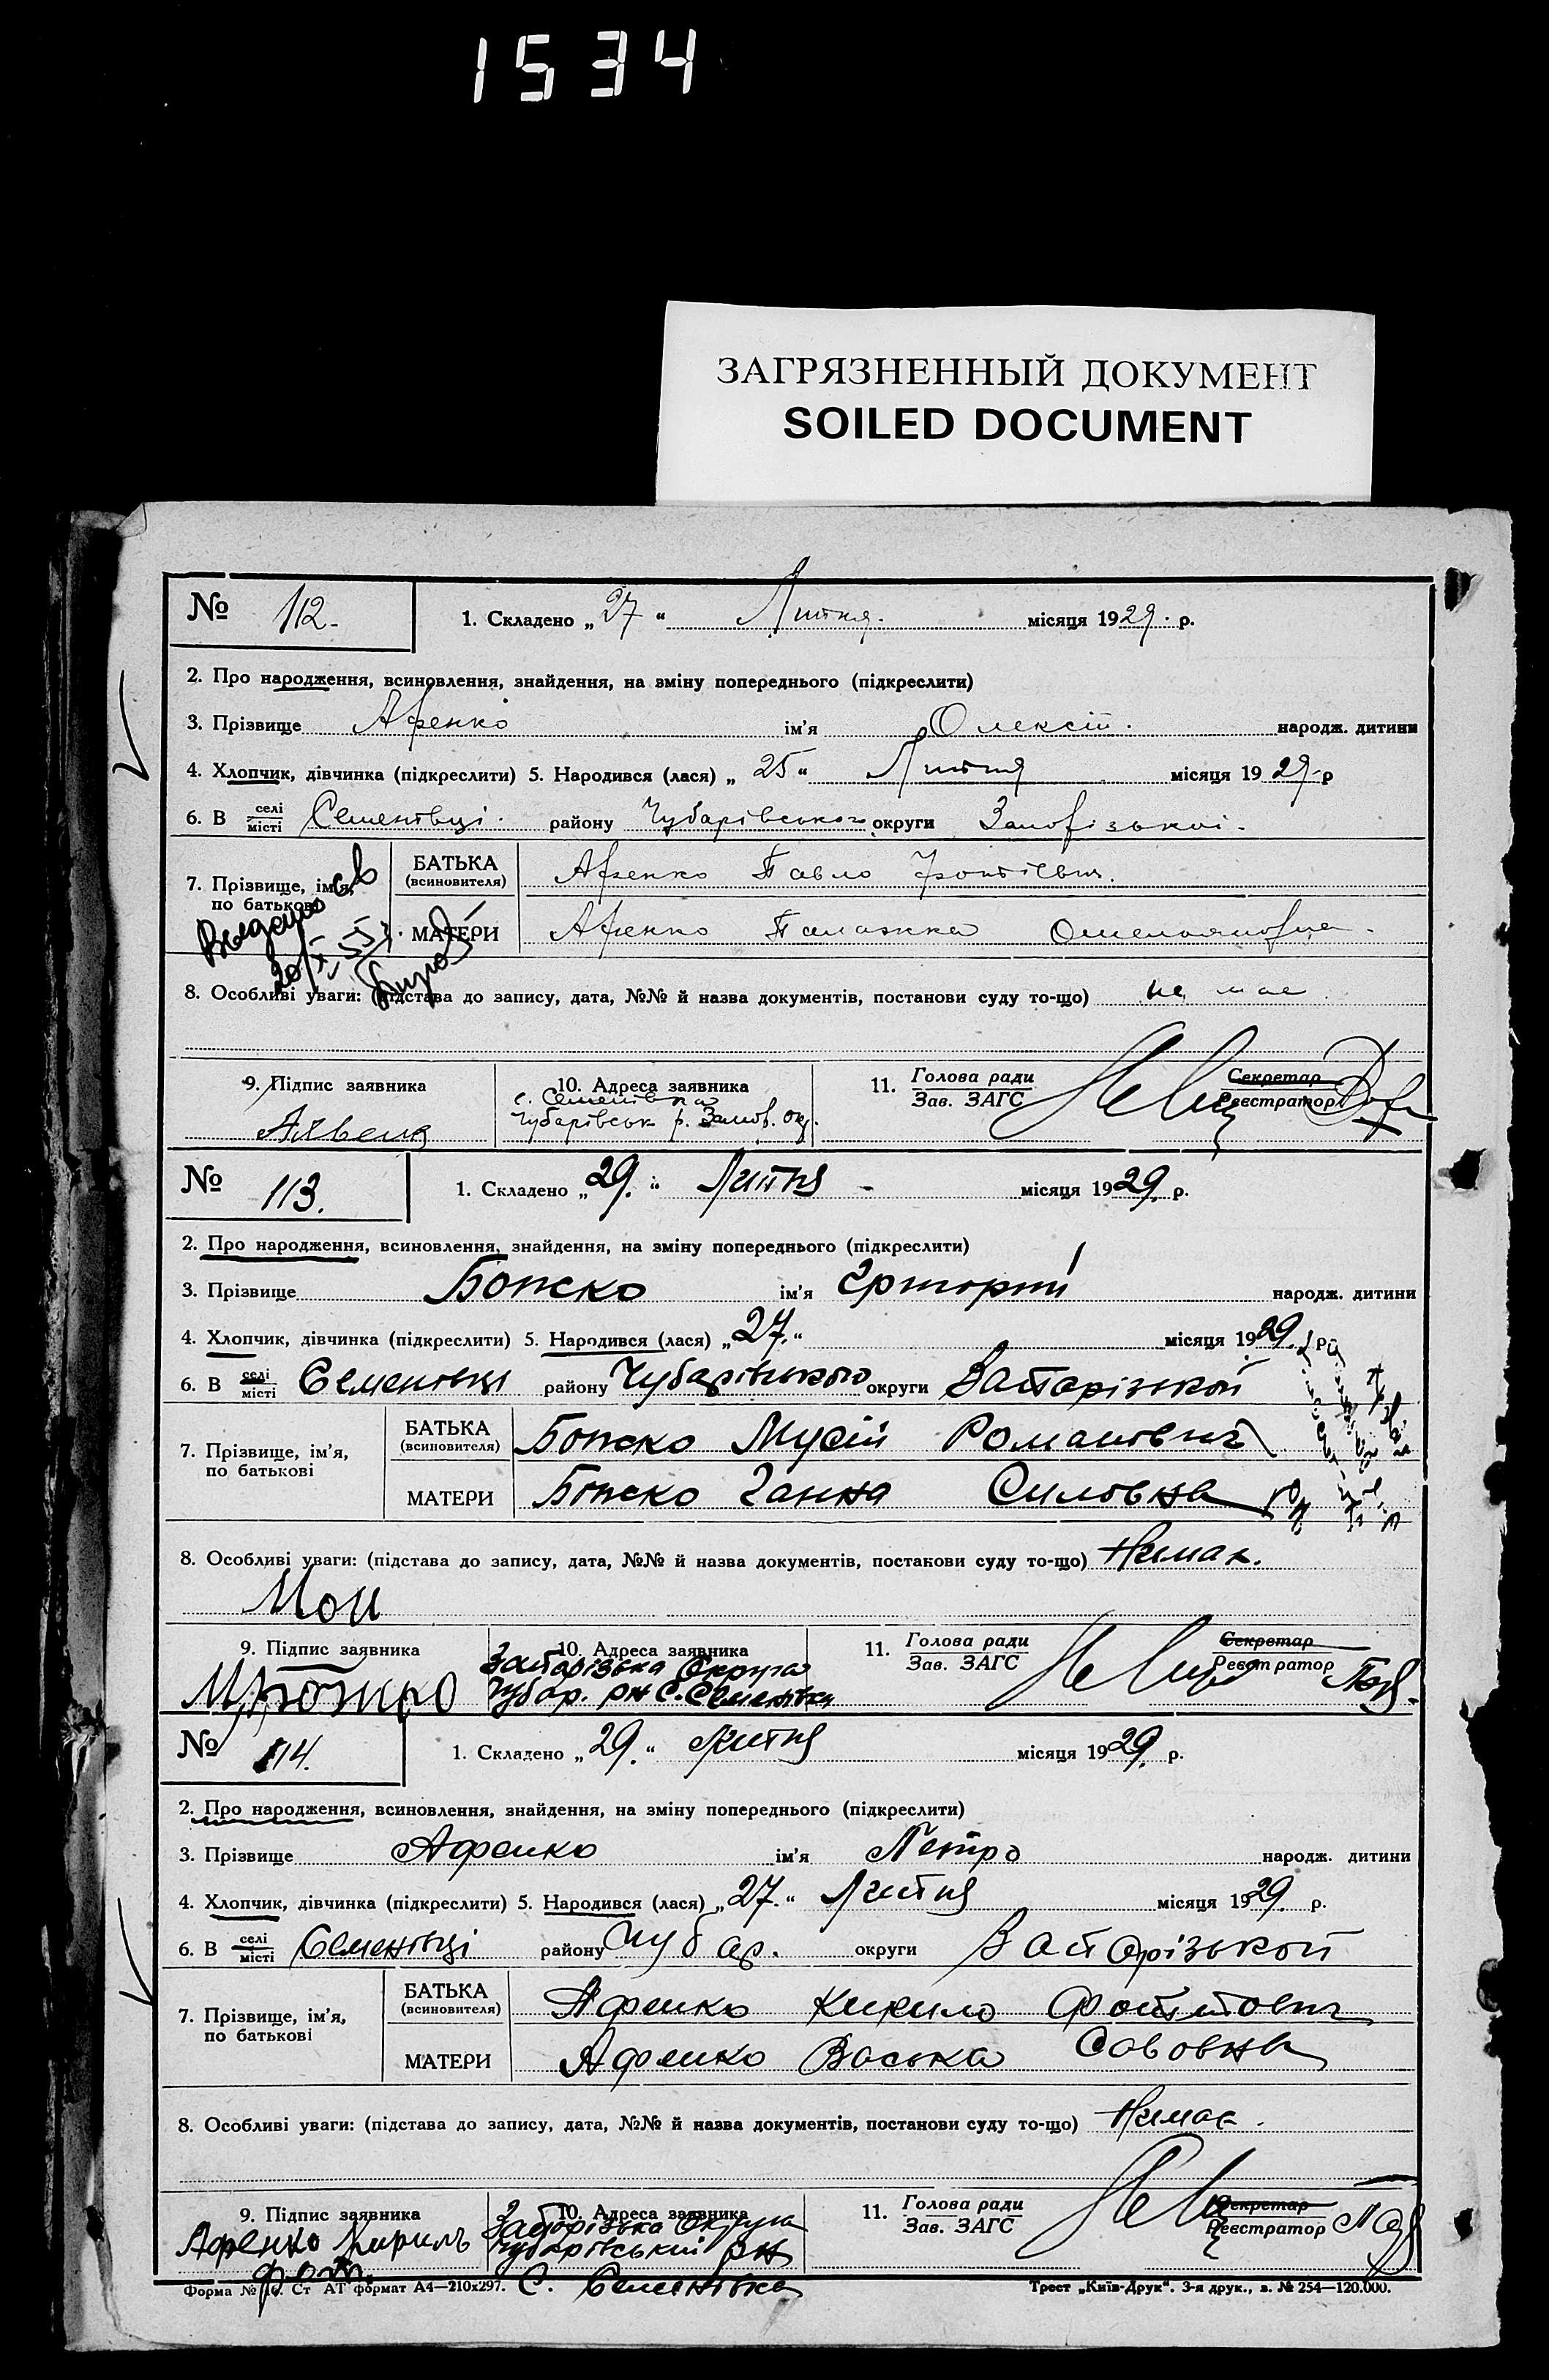 1534
ЗАГРЯЗНЕННЫЙ ДОКУМЕНТ
SOILED DOCUMENT
№ 112. 1. Складено „27“ Липня. місяця 1929. р.
2. Про народження, всиновлення, знайдення, на зміну попереднього (підкреслити)
3. Прізвище Афенко ім'я Олексій. народж. дитини
4. Хлопчик, дівчинка (підкреслити) 5. Народився (лася) „25“ Липня місяця 1929 р
6. В селі місті Семенівці. району Чубарівського округи Запорізької.
7. Прізвище, ім'я, по батькові
БАТЬКА (всиновителя) Афенко Павло
МАТЕРИ Афенко Палажка Омельяновна.
8. Особливі уваги: (підстава до запису, дата, №№ й назва документів, постанови суду то-що) не має
9. Підпис заявника
10. Адреса заявника
с. Семенівка
Чубарівськ р. Запор. окр.
11. Голова ради
Зав. ЗАГС
Секретар
Реєстратор
№ 113. 1. Складено „29.“ Липня місяця 1929. р.
2. Про народження, всиновлення, знайдення, на зміну попереднього (підкреслити)
3. Прізвище Божко ім'я народж. дитини
4. Хлопчик, дівчинка (підкреслити) 5. Народився (лася) „27.“ місяця 1929. р.
6. В селі місті Семенівці району Чубарівського округи Запорізької
7. Прізвище, ім'я, по батькові
БАТЬКА (всиновителя) Божко Мусій Романович
МАТЕРИ Божко Ганна Силовна
8. Особливі уваги: (підстава до запису, дата, №№ й назва документів, постакови суду то-що) Нимає.
9. Підпис заявника
10. Адреса заявника
Запорізька Округа
Чубар. рн С. Семенівка
11. Голова ради
Зав. ЗАГС
Секретар
Реєстратор
№ 114. 1. Складено „29.“ Липня місяця 1929. р.
2. Про народження, всиновлення, знайдення, на зміну попереднього (підкреслити)
3. Прізвище Афенко ім'я Петро народж. дитини
4. Хлопчик, дівчинка (підкреслити) 5. Народився (лася) „27.“ Липня місяця 1929. р.
6. В селі місті Семенівці району Чубар. округи Запорізької
7. Прізвище, ім'я, по батькові
БАТЬКА (всиновителя) Афенко Кирило
МАТЕРИ Афенко Васька Савовна
8. Особливі уваги: (підстава до запису, дата, №№ й назва документів, постанови суду то-що) Нимає.
9. Підпис заявника
Афенко Кирилъ
10. Адреса заявника
Запорізька Округа
Чубарівський рн
С. Семенівка
11. Голова ради
Зав. ЗАГС
Секретар
Реєстратор
Форма № 16. Ст АТ формат А4—210х297.
Трест „Київ-Друк“. 3-я друк., з. № 254—120.000.